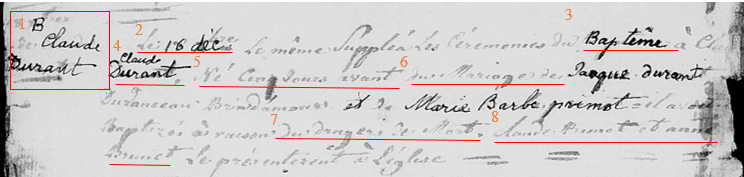 1 B
Claude
Durant
2 Le 16 déc. Le même Suppléa Les Ceremonies du 3 Baptême à Cla
4 Claude
Durant, 5 Né Cinq Jours avant 6 du Mariage de Jaque durant
Duranceau Brindamour et de Marie Barbe primot
Baptisé à raison 7 du dangers de Mort. 8 Claude Primot et anne
Brunet Le présenterent à L'église